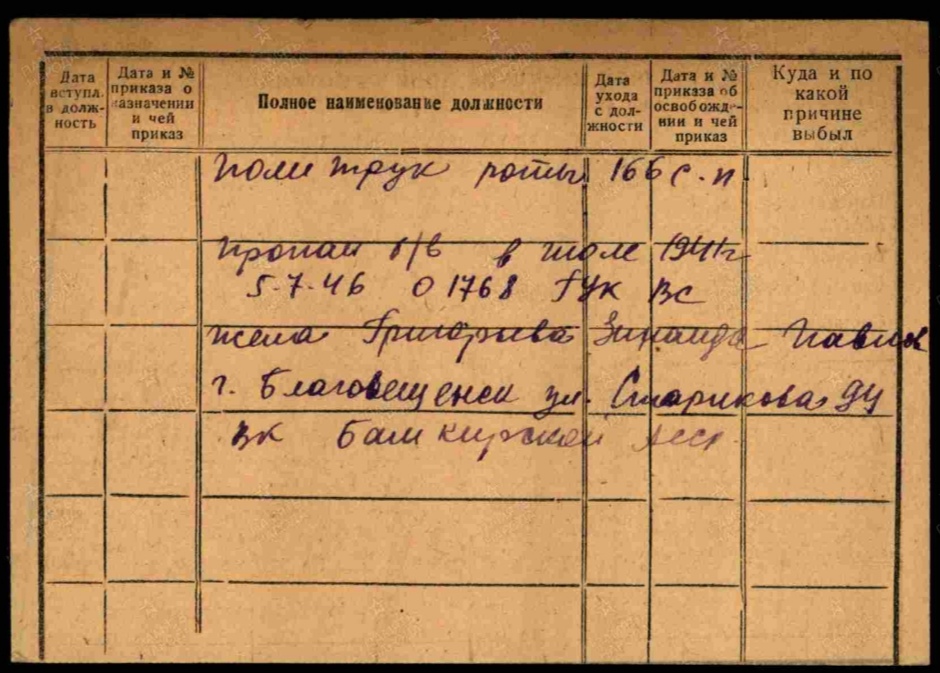 Дата вступл. в долж-ность
Дата и № приказа о назначении и чей приказ
Полное наименование должности
Дата ухода с дол-жности
Дата и № приказа об освобожде-нии и чей приказ
Куда и по какой причине выбыл
Политрук роты 166 с.п
пропал б/в в июле 1941г
5.7.46 01768 ГУК ВС
жена Григорьева Зинаида Павлов
г. Благовещенск ул. Старикова
ВК Башкирской АССР